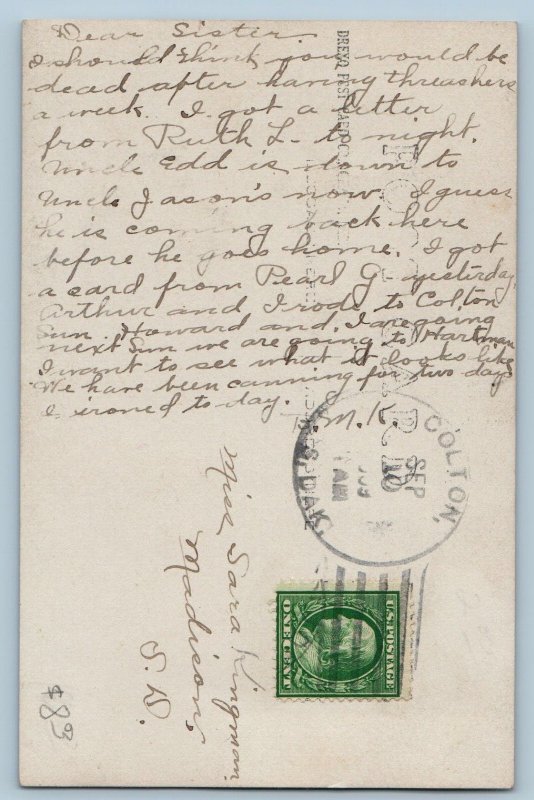 Dear Sister.
I should think you would be
dead after having threashers
a week. I got a letter
from Ruth L. to night.
Uncle Edd is down to
Uncle Jason's now. I guess
he is coming back here
before he goes home. I got
a card from Pearl G. yesterday.
Arthur and I rode to Colton
Sun. Howard and I are going
next Sun we are going to Hartman
I want to see what it looks like
We have been canning for two days
I ironed to day. M.K.
Miss Sara Kingman.
Madison,
S. D.
COLTON,
SEP
AM
S. DAK.
U.S. POSTAGE
ONE CENT
$83